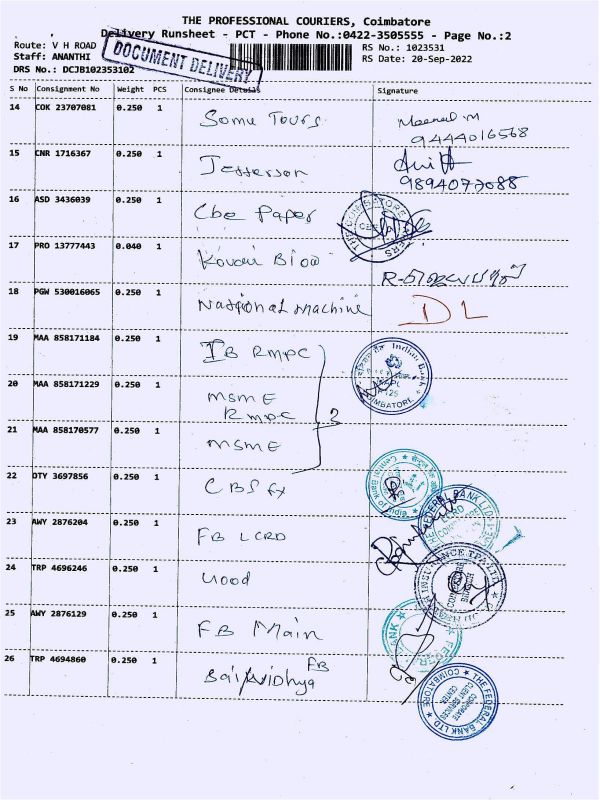 THE PROFESSIONAL COURIERS, Coimbatore
Delivery Runsheet - PCT - Phone No.:0422-3505555 - Page No.:2
Route: V H ROAD
RS No.: 1023531
Staff: ANANTHI
RS Date: 20-Sep-2022
DRS No.: DCJB102353102
DOCUMENT DELIVERY
S No Consignment No Weight PCS Consignee Details Signature
14 COK 23707081 0.250 1 Somu Tours Meenal.M
9444016568
15 CNR 1716367 0.250 1 Jefferson
9894077088
16 ASD 3436039 0.250 1 Cbe Paper
17 PRO 13777443 0.040 1 Kovai
18 PGW 530016065 0.250 1 National Machine DL
19 MAA 858171184 0.250 1 IB RMPC Indian Bank
COIMBATORE
20 MAA 858171229 0.250 1 MSME
RMPC
21 MAA 858170577 0.250 1 MSME
22 OTY 3697856 0.250 1 CBS
Central Bank of India
23 AWY 2876204 0.250 1 FB LCRD
THE FEDERAL BANK LTD
LCRD
24 TRP 4696246 0.250 1
25 AWY 2876129 0.250 1 FB Main
26 TRP 4694860 0.250 1 FB
THE FEDERAL BANK LTD
CORPORATE
CLIENT SERVICES
CENTER
COIMBATORE